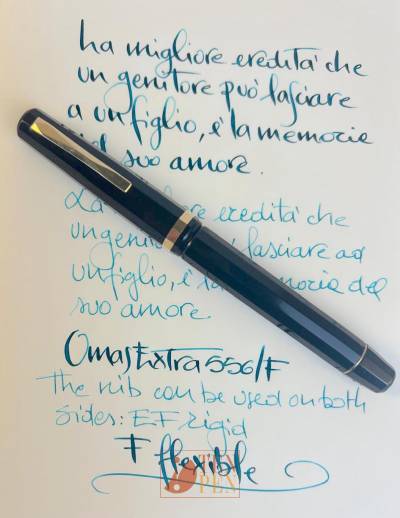 La migliore eredità che
un genitore può lasciare
a un figlio, è la memoria
suo amore.
eredità che
lasciare ad
un figlio, è
suo amore.
Omas Extra 556/F
The nib can be used on both
sides: EF rigid
F flexible
TEN
PEN